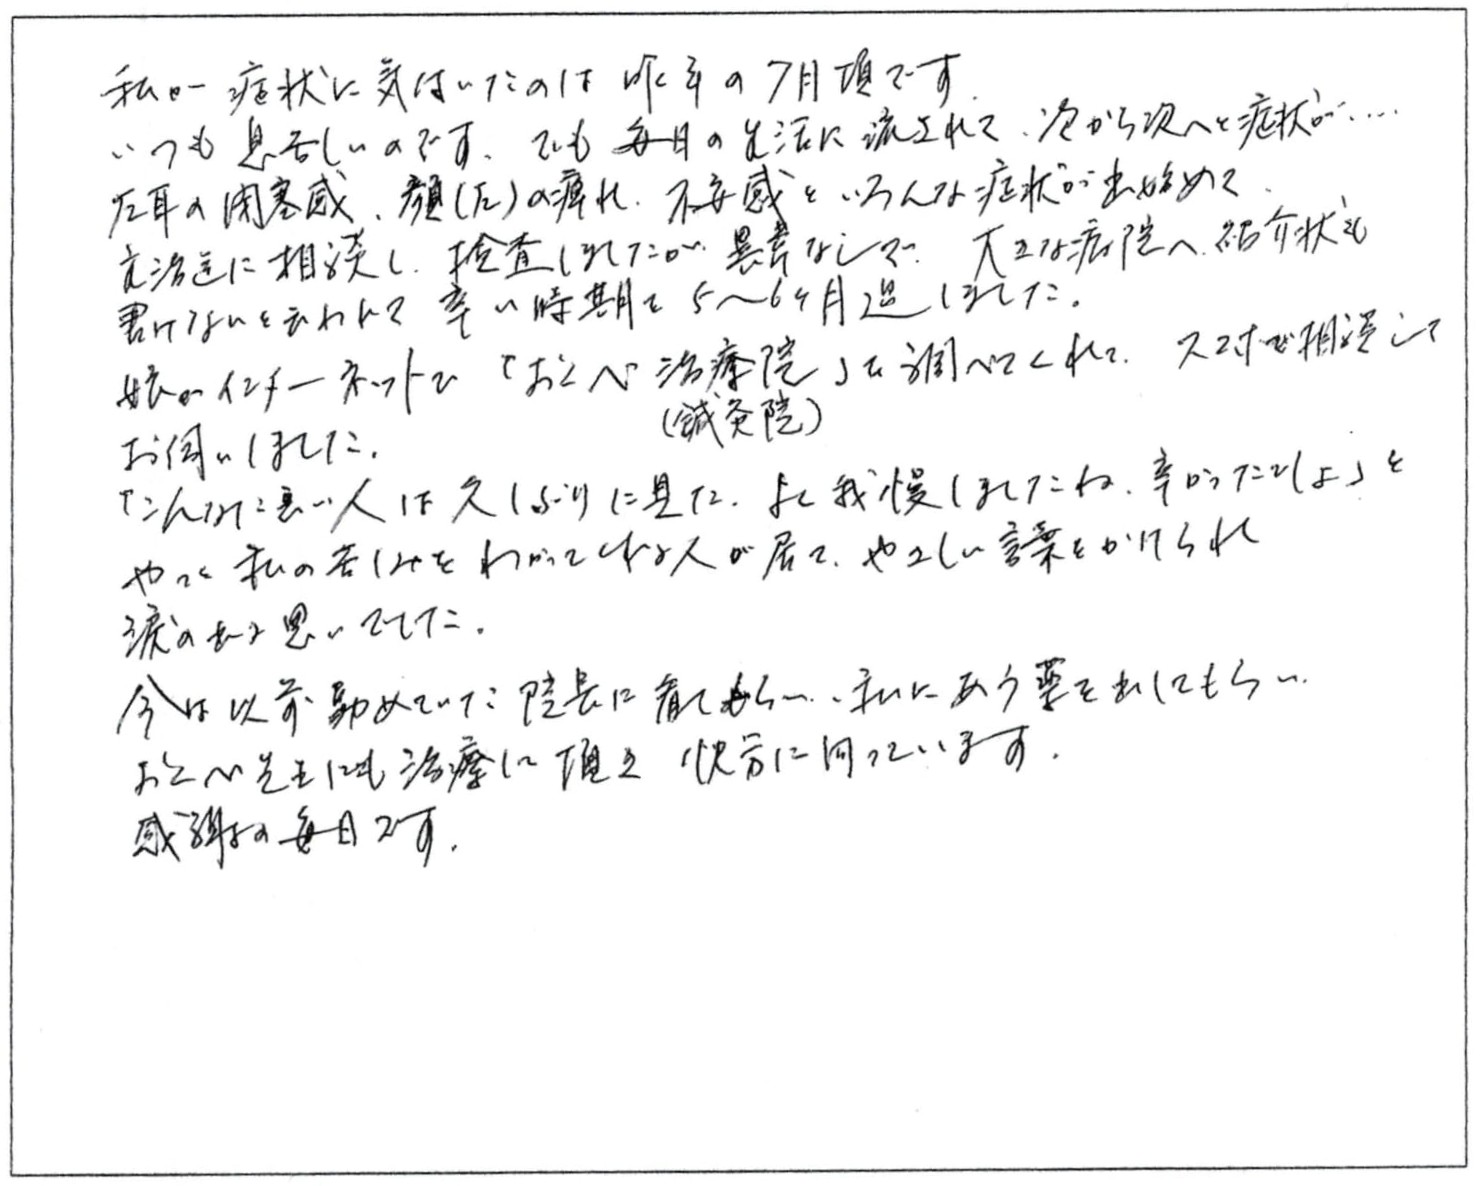 私が症状に気付いたのは昨年の7月頃です
いつも息苦しいのです、でも毎日の生活に流されて、次から次へと症状が‥‥
左耳の閉塞感、顔(左)の痺れ、不安感といろんな症状が出始めて、
主治医に相談し、検査しましたが異常なしで、大きな病院へ紹介状も
書けないと云われて辛い時期を5〜6ヶ月過しました。
娘がインターネットで「おくべ治療院」を調べてくれて、スマホで相談して
(鍼灸院)
お伺いしました。
「こんなに悪い人は久しぶりに見た、よく我慢しましたね、辛かったでしょ」と
やっと私の苦しみをわかってくれる人が居て、やさしい言葉をかけられ
涙の出る思いでした。
今は以前勤めていた院長に看てもらい、私にあう薬を出してもらい
おくべ先生にも治療して頂き快方に向っています。
感謝の毎日です。